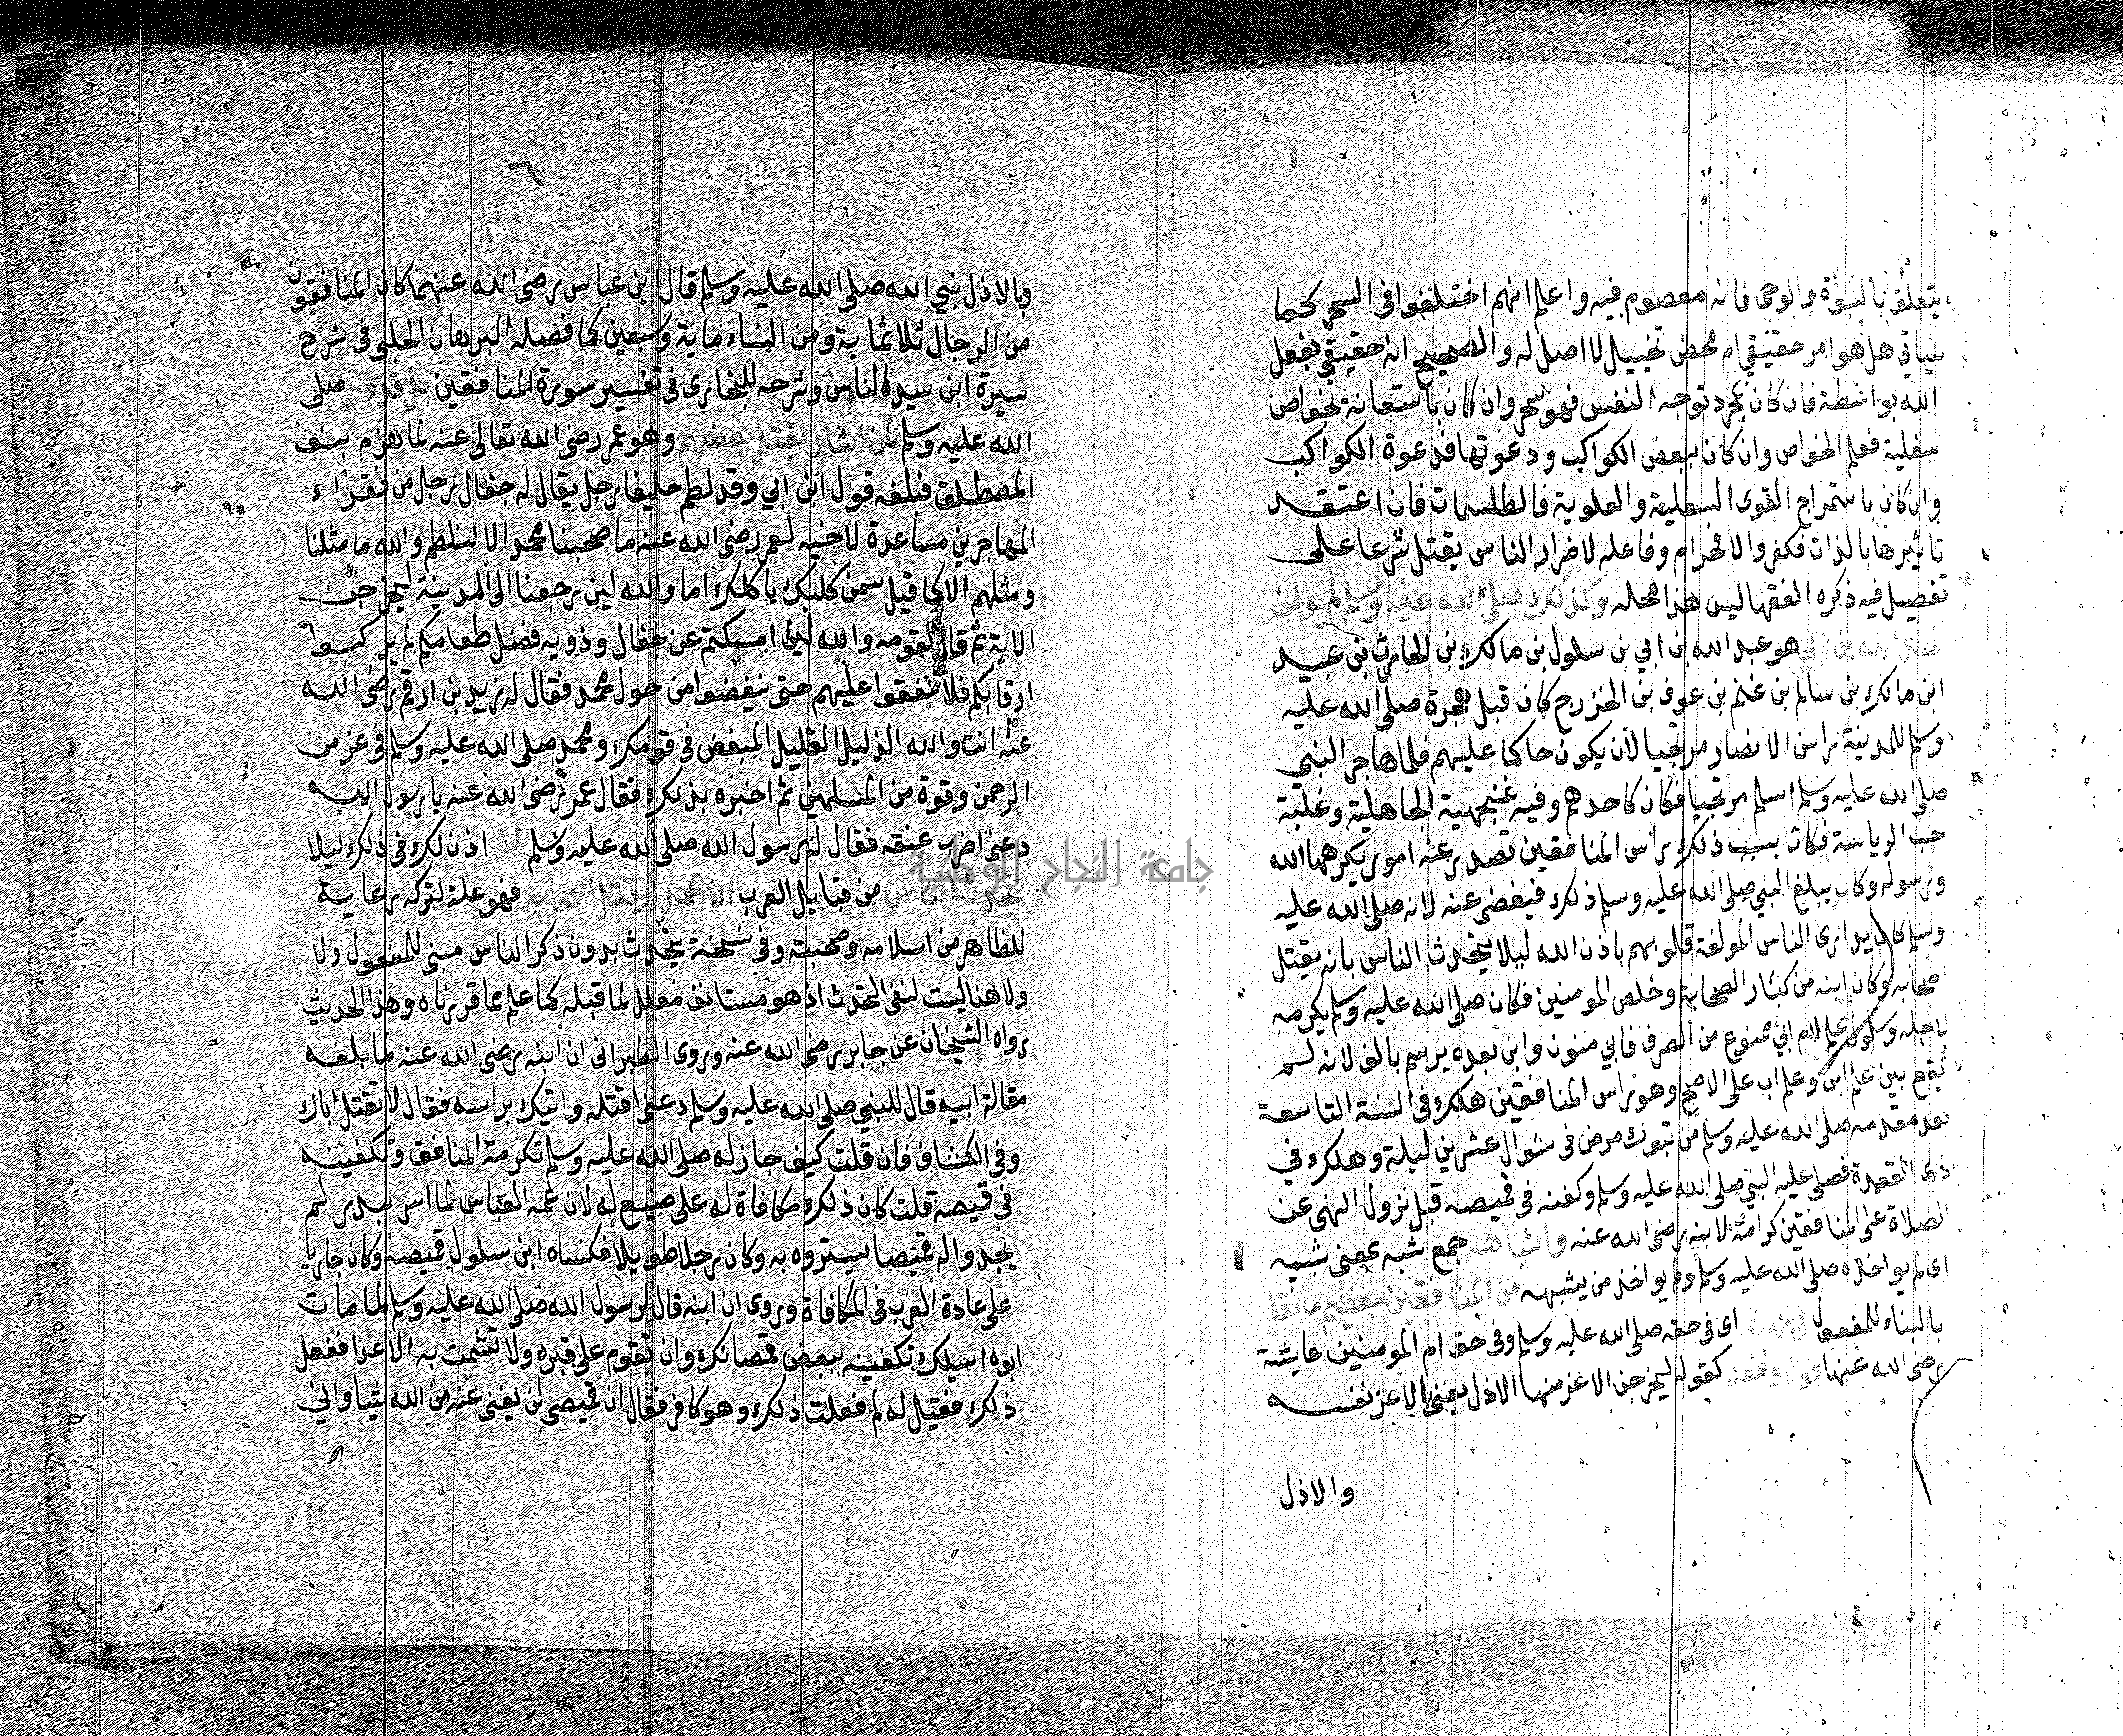 يتعلق بالنبوة والوحى فانه معصوم فيه واعلم انهم اختلفوا فى السحر كما
سياتي هل هو امر حقيقي ام محض تخييل لا اصل له والصحيح انه حقيقي بفعل
الله بواسطة فان كان بمجرد توجه النفس فهو سحر وان كان باستعانة بخواص
سفلية فعلم الخواص وان كان ببعض الكواكب ودعوتها فدعوة الكواكب
وان كان باستمزاج القوى السفلية والعلوية فالطلسمات فان اعتقد
تاثيرها بالذات فكفر والا فحرام وفاعله لاضرار الناس يقتل شرعا على
تفصيل فيه ذكره الفقها ليس هذا محله وكذلك صلى الله عليه وسلم لم يواخذ
عبد الله بن ابي هو عبد الله بن ابي بن سلول بن مالك بن الحارث بن عبيد
ابن مالك بن سالم بن غنم بن عوف بن الخزرج كان قبل هجرة صلى الله عليه
وسلم للمدينة راس الانصار مرتجيا لان يكون حاكما عليهم فلما هاجر النبي
صلى الله عليه وسلم اسلم مرتجيا فكان كاحدهم وفيه عنجهية الجاهلية وغلبة
حب الرياسة فكان بسبب ذلك راس المنافقين تصدر عنه امور يكرهها الله
ورسوله وكان يبلغ النبي صلى الله عليه وسلم ذلك فيغضى عنه لانه صلى الله عليه
وسلم كان يدارى الناس المولفة قلوبهم باذن الله ليلا يتحدث الناس بانه يقتل
اصحابه وكان ابنه من كبار الصحابة وخلص المومنين فكان صلى الله عليه وسلم يكرمه
لاجله وسلول علم لام ابي ممنوع من الصرف فابي منون وابن بعده يرسم بالف لانه لم
يقع بين علم ابن وعلم اب على الاصح وهو راس المنافقين هلك فى السنة التاسعة
بعد مقدمه صلى الله عليه وسلم من تبوك مرض فى شوال عشرين ليلة وهلك في
ذى القعدة فصلى عليه النبي صلى الله عليه وسلم وكفنه فى قميصه قبل نزول النهى عن
الصلاة على المنافقين كرامة لابنه رضى الله عنه واشباهه جمع شبه بمعنى شبيه
اى لم يواخذه صلى الله عليه وسلم ولم يواخذ من يشبهه من المنافقين بعظيم ما نقل
بالبناء للمفعول في جهته اى فى حقه صلى الله عليه وسلم وفى حق ام المومنين عايشة
رضى الله عنها قول وفعل كقوله ليخرجن الاعز منها الاذل يعنى بالاعز نفسه
والاذل
٦
وبالاذل نبي الله صلى الله عليه وسلم قال ابن عباس رضى الله عنهما كان المنافقون
من الرجال ثلاثماية ومن النساء ماية وسبعين كما فصله البرهان الحلبى فى شرح
سيرة ابن سيد الناس وشرحه للبخارى فى تفسير سورة المنافقين بل قد قال صلى
الله عليه وسلم لمن اشار بقتل بعضهم وهو عمر رضى الله تعالى عنه لما هزم بنو
المصطلق فبلغه قول ابن ابي وقد لطم حليفا رجل يقال له جفال رجل من فقراء
المهاجرين مساعدة لاجير لعمر رضى الله عنه ما صحبنا محمدا الا لنلطم والله ما مثلنا
ومثلهم الا كما قيل سمن كلبك ياكلك اما والله لين رجعنا الى المدينة ليخرجن
الاية ثم قال لقومه والله لين امسكتم عن جفال وذويه فضل طعامكم لم يركبوا
ارقابكم فلا تنفقوا عليهم حتى ينفضوا من حول محمد فقال له زيد بن ارقم رضى الله
عنه انت والله الذليل القليل المبغض في قومك ومحمد صلى الله عليه وسلم فى عز من
الرحمن وقوة من المسلمين ثم اخبره بذلك فقال عمر رضى الله عنه يا رسول الله
دعنى اضرب عنقه فقال له رسول الله صلى الله عليه وسلم لا اذن لك فى ذلك ليلا
يتحدث الناس من قبايل العرب ان محمدا يقتل اصحابه فهو علة لتركه رعاية
للظاهر من اسلامه وصحبته وفى نسخة يتحدث بدون ذكر الناس مبنى للمفعول ولا
ولا هنا ليست لنفى التحدث اذ هو مستانف معلل لما قبله كما علم مما قررناه وهذا الحديث
رواه الشيخان عن جابر رضى الله عنه وروى الطبرانى ان ابنه رضى الله عنه ما بلغه
مقالة ابيه قال للنبي صلى الله عليه وسلم دعنى اقتله واتيك براسه فقال لا تقتل اباك
وفى الكشاف فان قلت كيف جاز له صلى الله عليه وسلم تكرمة المنافق وتكفينه
فى قميصه قلت كان ذلك مكافاة له على صنيع له لان عمه العباس لما اسر ببدر لم
يجدوا له قميصا يستروه به وكان رجلا طويلا فكساه ابن سلول قميصه وكان جاريا
على عادة العرب فى المكافاة وروى ان ابنه قال لرسول الله صلى الله عليه وسلم لما مات
ابوه اسيلك تكفينه ببعض قمصانك وان تقوم على قبره ولا تشمت به الاعدا ففعل
ذلك فقيل له لم فعلت ذلك وهو كافر فقال ان قميصى لن يغنى عنه من الله شيا واني
جامعة النجاح الوطنية